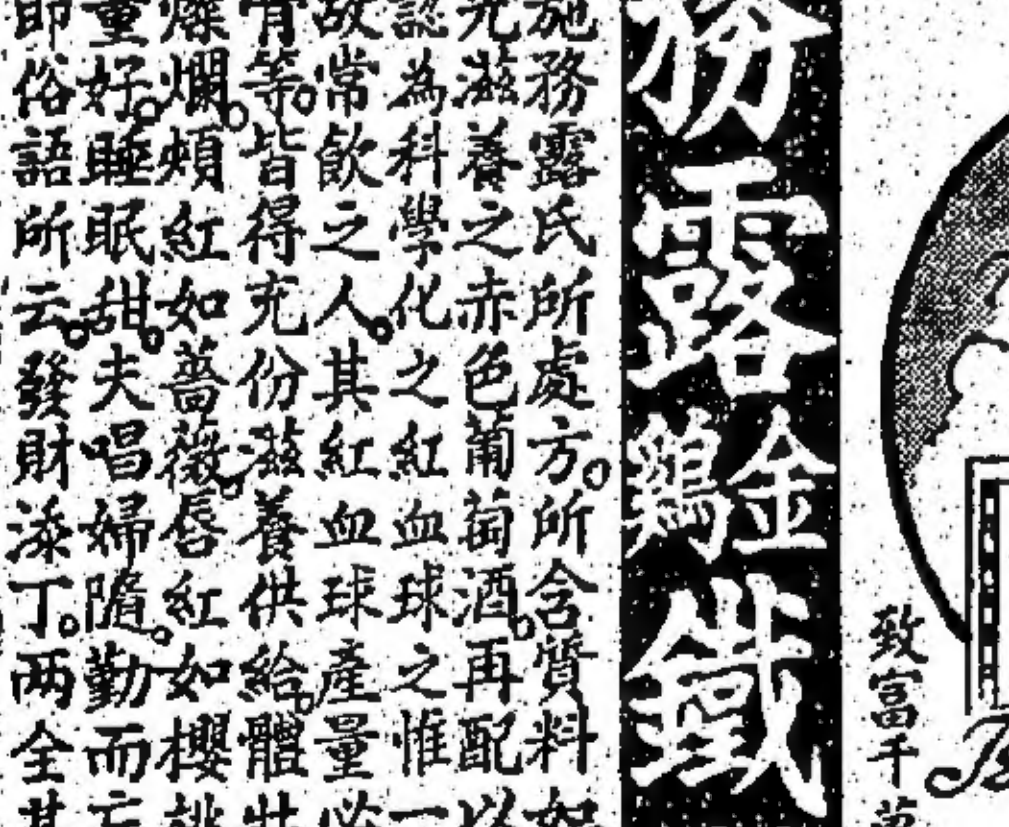 致富千萬
務露金鷄鐵
施務露氏所處方。所含質料如
充滋養之赤色葡萄酒。再配以
認為科學化之紅血球之惟一
故常飲之人。其紅血球產量必
有等。皆得充份滋養供給。體壯
燦爛。頰紅如薔薇。唇紅如櫻桃
重好。睡眠甜。夫唱婦隨。勤而忘
即俗語所云。發財添丁。两全其